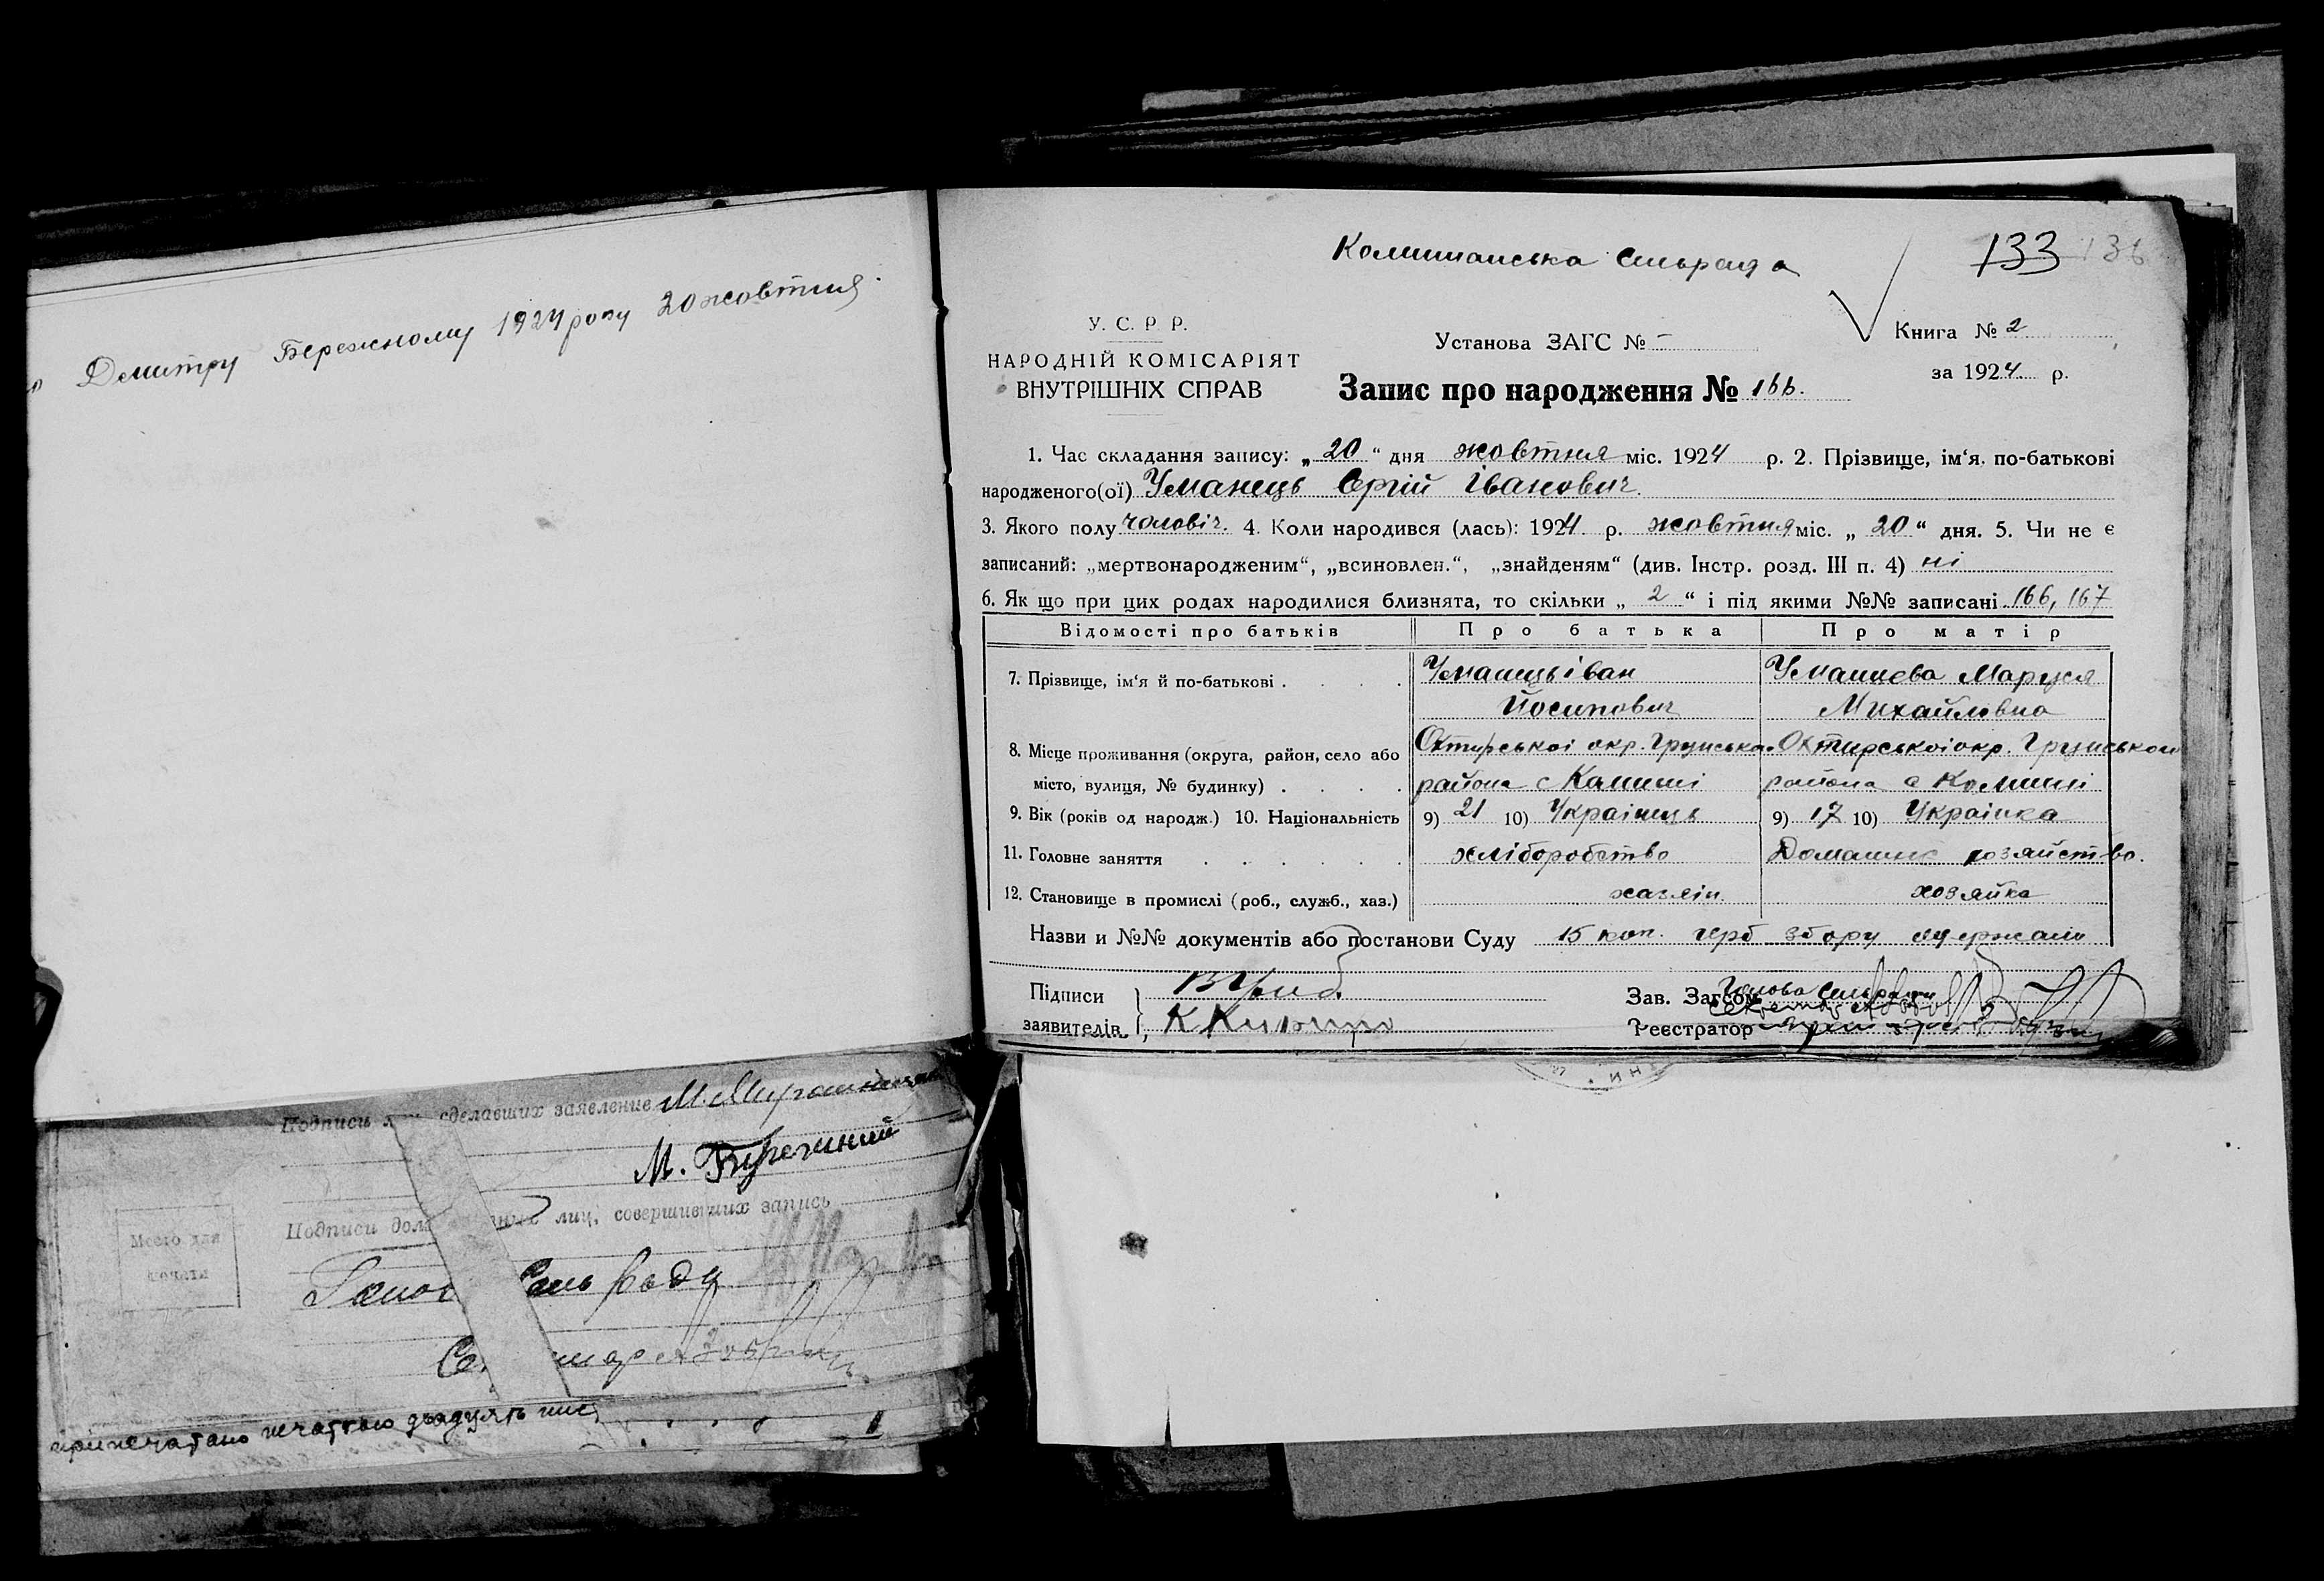 Дмитру Бережному 1924 року 20 жовтня.
Подписи сделавших заявление М.
М. Бережний
Подписи лиц, совершивших запись
Место для
печати
Сель раду
припечатано печаттю двадцять
Комишанська сільрада
133 136
У. С. Р. Р.
НАРОДНІЙ КОМІСАРІЯТ
ВНУТРІШНІХ СПРАВ
Установа ЗАГС № –
Книга № 2
за 1924 р.
Запис про народження № 166.
1. Час складання запису: „ 20 “ дня жовтня міс. 1924 р. 2. Прізвище, ім‘я, по-батькові
народженого(ої) Уманець Сргій Іванович.
3. Якого полу чоловіч. 4. Коли народився (лась): 1924 р. жовтня міс. „ 20 “ дня. 5. Чи не є
записаний: „мертвонародженим“, „всиновлен.“, „знайденям“ (див. Інстр. розд. III п. 4) ні
6. Як що при цих родах народилися близнята, то скільки „ 2 “ і під якими №№ записані 166, 167
Відомості про батьків Про батька Про матір
7. Прізвище, ім‘я й по-батькові . . . . Уманець іван Уманцева Маруся
Йосипович Михайловна
8. Місце проживання (округа, район, село або Охтирської окр. Грунсько Охтирської окр. Грунської
місто, вулиця, № будинку) . . . . района с Комиші района с Комиші
9. Вік (років од народж.) 10. Національність 9) 21 10) Українець 9) 17 10) Українка
11. Головне заняття . . . . . . хліборобство Домашнє хозяйство.
12. Становище в промислі (роб., служб., хаз.) хазяїн. хозяйка
Назви и №№ документів або постанови Суду 15 коп. герб збору одержано
Підписи
заявителів,
Зав. Загсом Голова сільради
Реєстратор